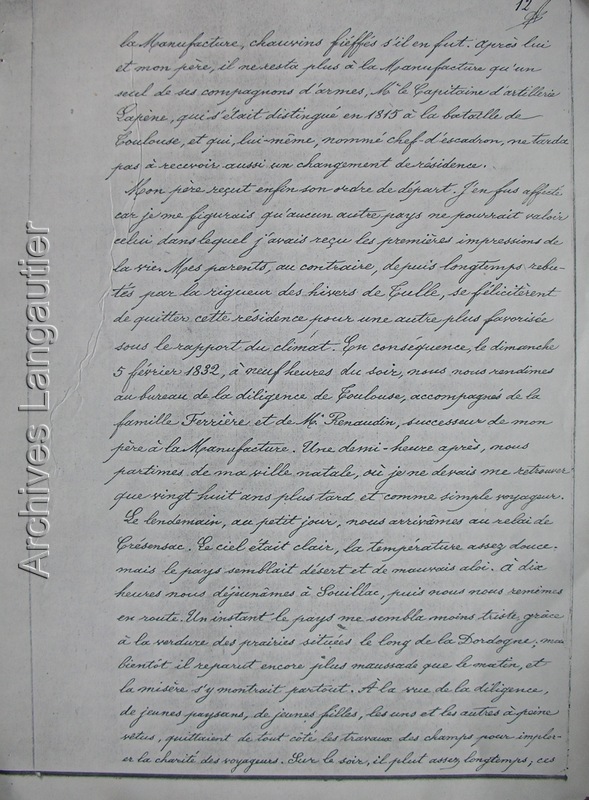 12
la Manufacture, chauvins fieffés s'il en fut. Après lui
et mon père, il ne resta plus à la Manufacture qu'un
seul de ses compagnons d'armes, Mr le Capitaine d'artillerie
Lapène, qui s'était distingué en 1815 à la bataille de
Toulouse, et qui, lui-même, nommé chef-d'escadron, ne tarda
pas à recevoir aussi un changement de résidence.
Mon père reçut enfin son ordre de départ. J'en fus affecté
car je me figurais qu'aucun autre pays ne pourrait valoir
celui dans lequel j'avais reçu les premières impressions de
la vie. Mes parents, au contraire, depuis longtemps rebu-
tés par la rigueur des hivers de Tulle, se félicitèrent
de quitter cette résidence pour une autre plus favorisée
sous le rapport du climat. En conséquence, le dimanche
5 février 1832, à neuf heures du soir, nous nous rendîmes
au bureau de la diligence de Toulouse, accompagnés de la
famille Ferrière et de Mr Renaudin, successeur de mon
père à la Manufacture. Une demi-heure après, nous
partimes de ma ville natale, où je ne devais me retrouver
que vingt huit ans plus tard et comme simple voyageur.
Le lendemain, au petit jour, nous arrivâmes au relai de
Crésensac. Le ciel était clair, la température assez douce.
mais le pays semblait désert et de mauvais aloi. À dix
heures nous déjeunâmes à Souillac, puis nous nous remimes
en route. Un instant le pays me sembla moins triste grâce
à la verdure des prairies situées le long de la Dordogne, mais
bientôt il reparut encore plus maussade que le matin, et
la misère s'y montrait partout. A la vue de la diligence,
de jeunes paysans, de jeunes filles, les uns et les autres à peine
vêtus, quittaient de tout côté les travaux des champs pour implor-
er la charité des voyageurs. Sur le soir, il plut assez longtemps, ces
Archives Langautier